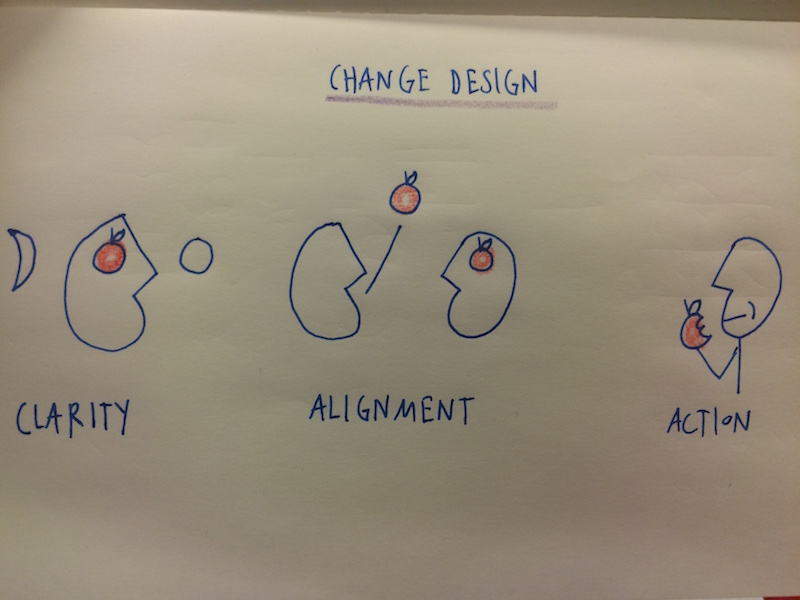 CHANGE DESIGN
CLARITY
ALIGNMENT
ACTION